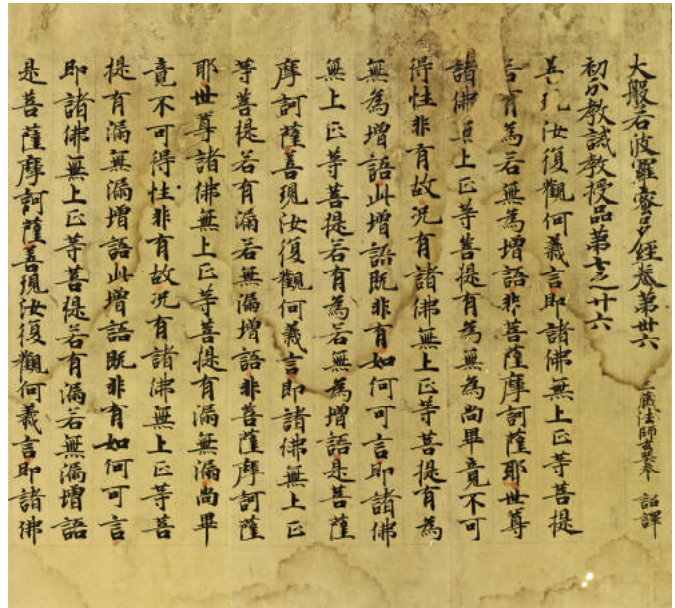 大般若波羅蜜多經卷第卅六 三藏法師玄奘奉 詔譯
初分教誡教授品第七之廿六
善現汝復觀何義言即諸佛無上正等菩提
若有為若無為增語非菩薩摩訶薩耶世尊
諸佛無上正等菩提有為無為尚畢竟不可
得性非有故況有諸佛無上正等菩提有為
無為增語此增語既非有如何可言即諸佛
無上正等菩提若有為若無為增語是菩薩
摩訶薩善現汝復觀何義言即諸佛無上正
等菩提若有漏若無漏增語非菩薩摩訶薩
耶世尊諸佛無上正等菩提有漏無漏尚畢
竟不可得性非有故況有諸佛無上正等菩
提有漏無漏增語此增語既非有如何可言
即諸佛無上正等菩提若有漏若無漏增語
是菩薩摩訶薩善現汝復觀何義言即諸佛